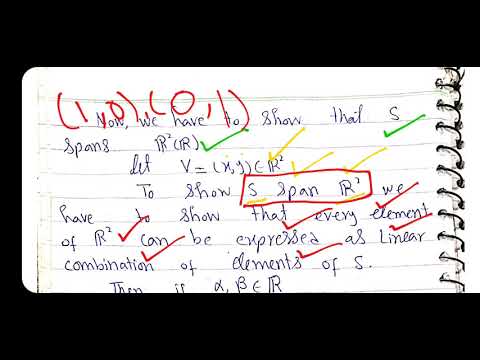 (1,0),(0,1)
Now, we have to show that S
spans ℝ²(ℝ)
let V=(x,y)∈ℝ²
To show S span ℝ² we
have to show that every element
of ℝ² can be expressed as linear
combination of elements of S.
Then if α,β∈ℝ